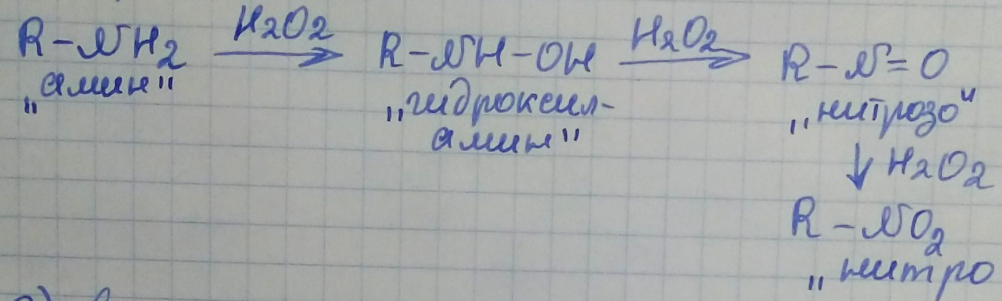 R-NH2 H2O2 R-NH-OH H2O2 R-N=O
„амин" „гидроксил- „нитрозо"
амин" H2O2
R-NO2
„нитро